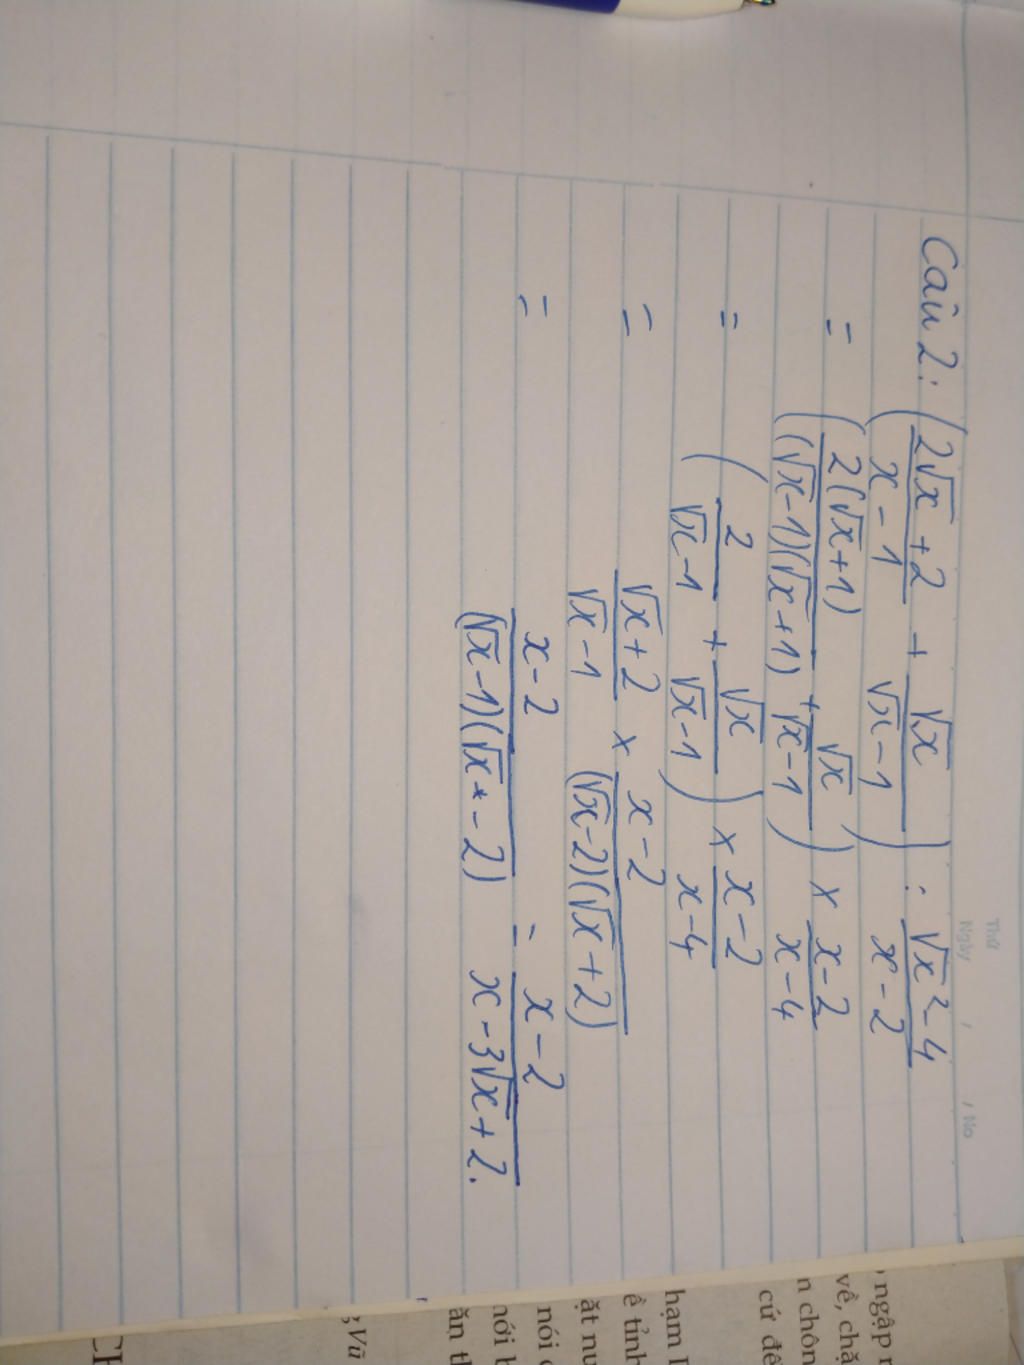 Thứ
Ngày , , No
Câu 2: (2√x + 2 / x - 1 + √x / √x - 1) : √x² - 4 / x - 2
= (2(√x + 1) / (√x - 1)(√x + 1) + √x / √x - 1) × x - 2 / x - 4
= (2 / √x - 1 + √x / √x - 1) × x - 2 / x - 4
= √x + 2 / √x - 1 × x - 2 / (√x - 2)(√x + 2)
= x - 2 / (√x - 1)(√x - 2) = x - 2 / x - 3√x + 2.
ngập
về, chặ
n chôn
cứ đê
hạm
ề tỉnh
ặt nu
nói
nới
ăn th
Vũ